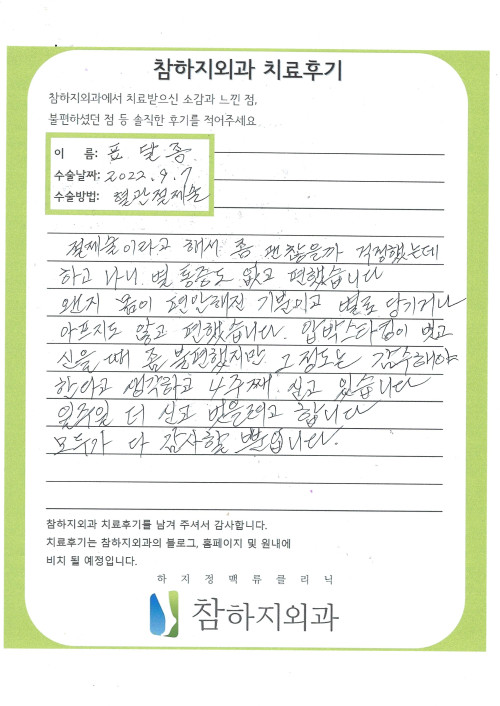 참하지외과 치료후기
참하지외과에서 치료받으신 소감과 느낀 점,
불편하셨던 점 등 솔직한 후기를 적어주세요
이 름: 표 달 종
수술날짜: 2022. 9. 7
수술방법: 혈관절제술
절제술이라고 해서 좀 괜찮을까 걱정했는데
하고 나니 별 통증도 없고 편했습니다
왠지 몸이 편안해진 기분이고 별로 당기거나
아프지도 않고 편했습니다. 압박스타킹이 벗고
신을 때 좀 불편했지만 그 정도는 감수해야
한다고 생각하고 4주째 신고 있습니다
일주일 더 신고 벗을려고 합니다
모두가 다 감사할 뿐입니다.
참하지외과 치료후기를 남겨 주셔서 감사합니다.
치료후기는 참하지외과의 블로그, 홈페이지 및 원내에
비치 될 예정입니다.
하지정맥류클리닉
참하지외과